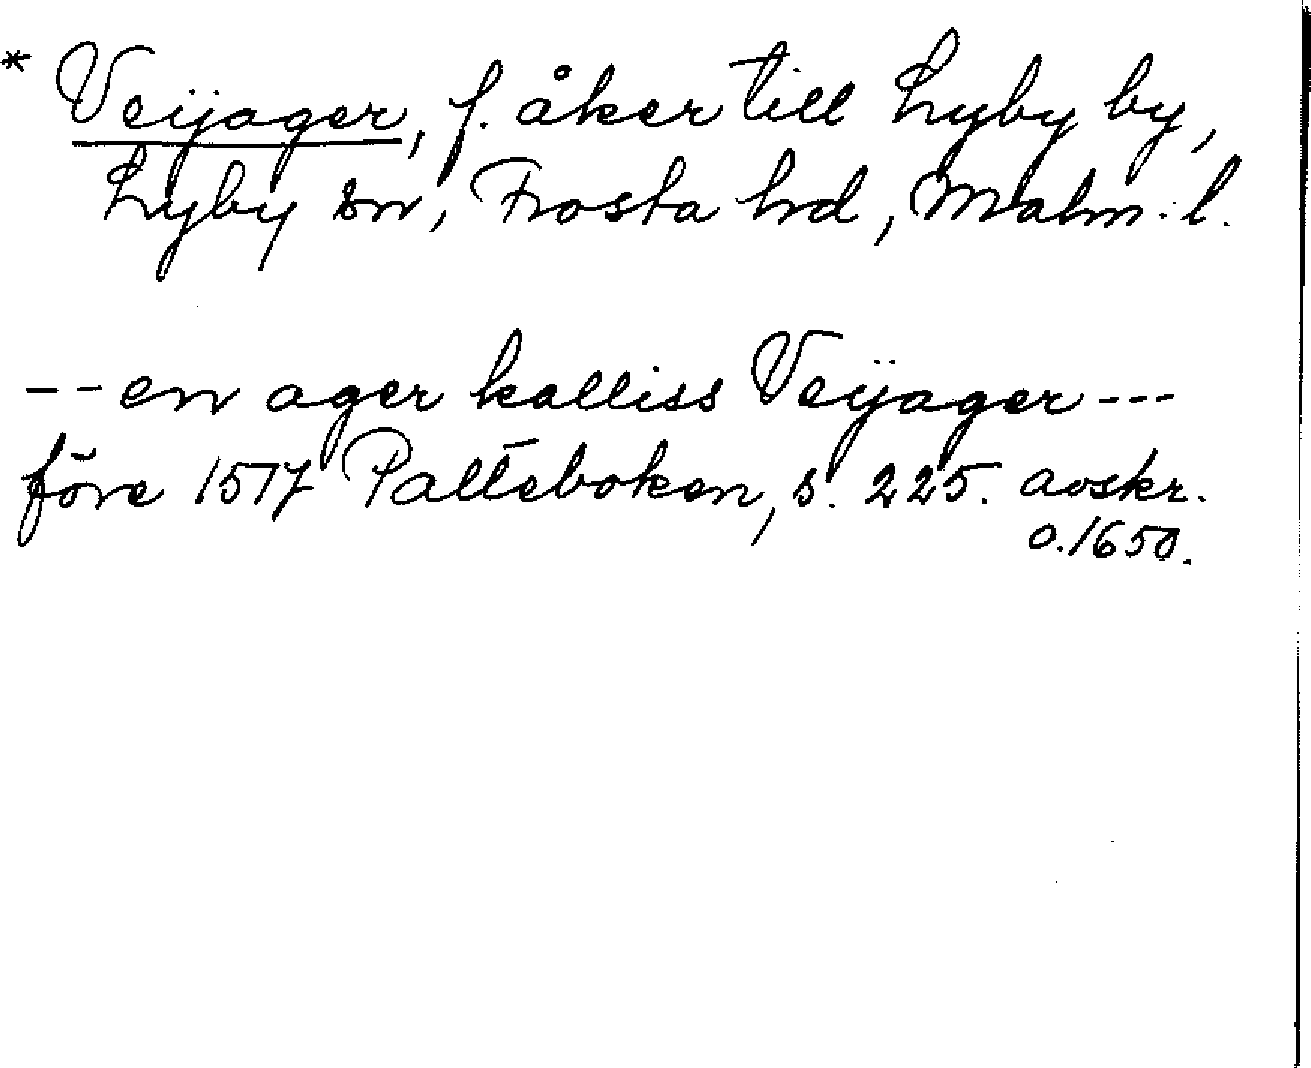 * Veijager, f. åker till Lyby by,
Lyby sn, Frosta hd, Malm. l.
-- en ager kalliss Veijager ---
före 1517 Palteboken, s. 225. avskr.
o. 1650.